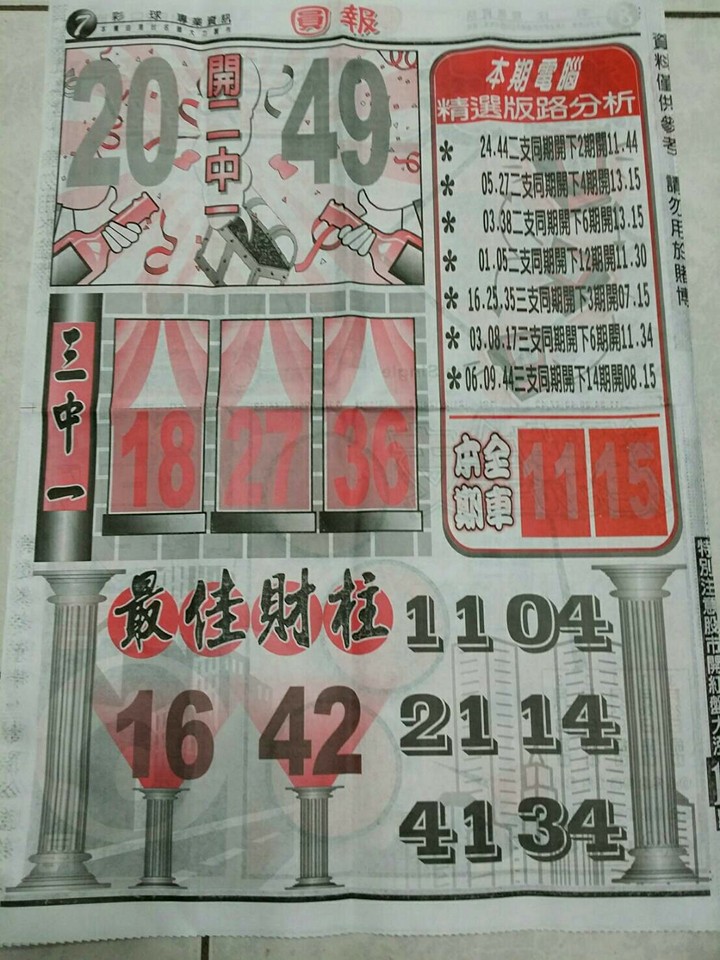 7 彩球專業資訊
員報
20
開二中一
49
三中一
18 27 36
本期電腦
精選版路分析
* 24.44二支同期開下2期開11.44
* 05.27二支同期開下4期開13.15
* 03.38二支同期開下6期開13.15
* 01.05二支同期開下12期開11.30
* 16.25.35三支同期開下3期開07.15
* 03.08.17三支同期開下6期開11.34
* 06.09.44三支同期開下14期開08.15
本期
全車
11 15
資料僅供參考 請勿用於賭博
最佳財柱
16 42
11 04
21 14
41 34
特別注意股市開紅盤